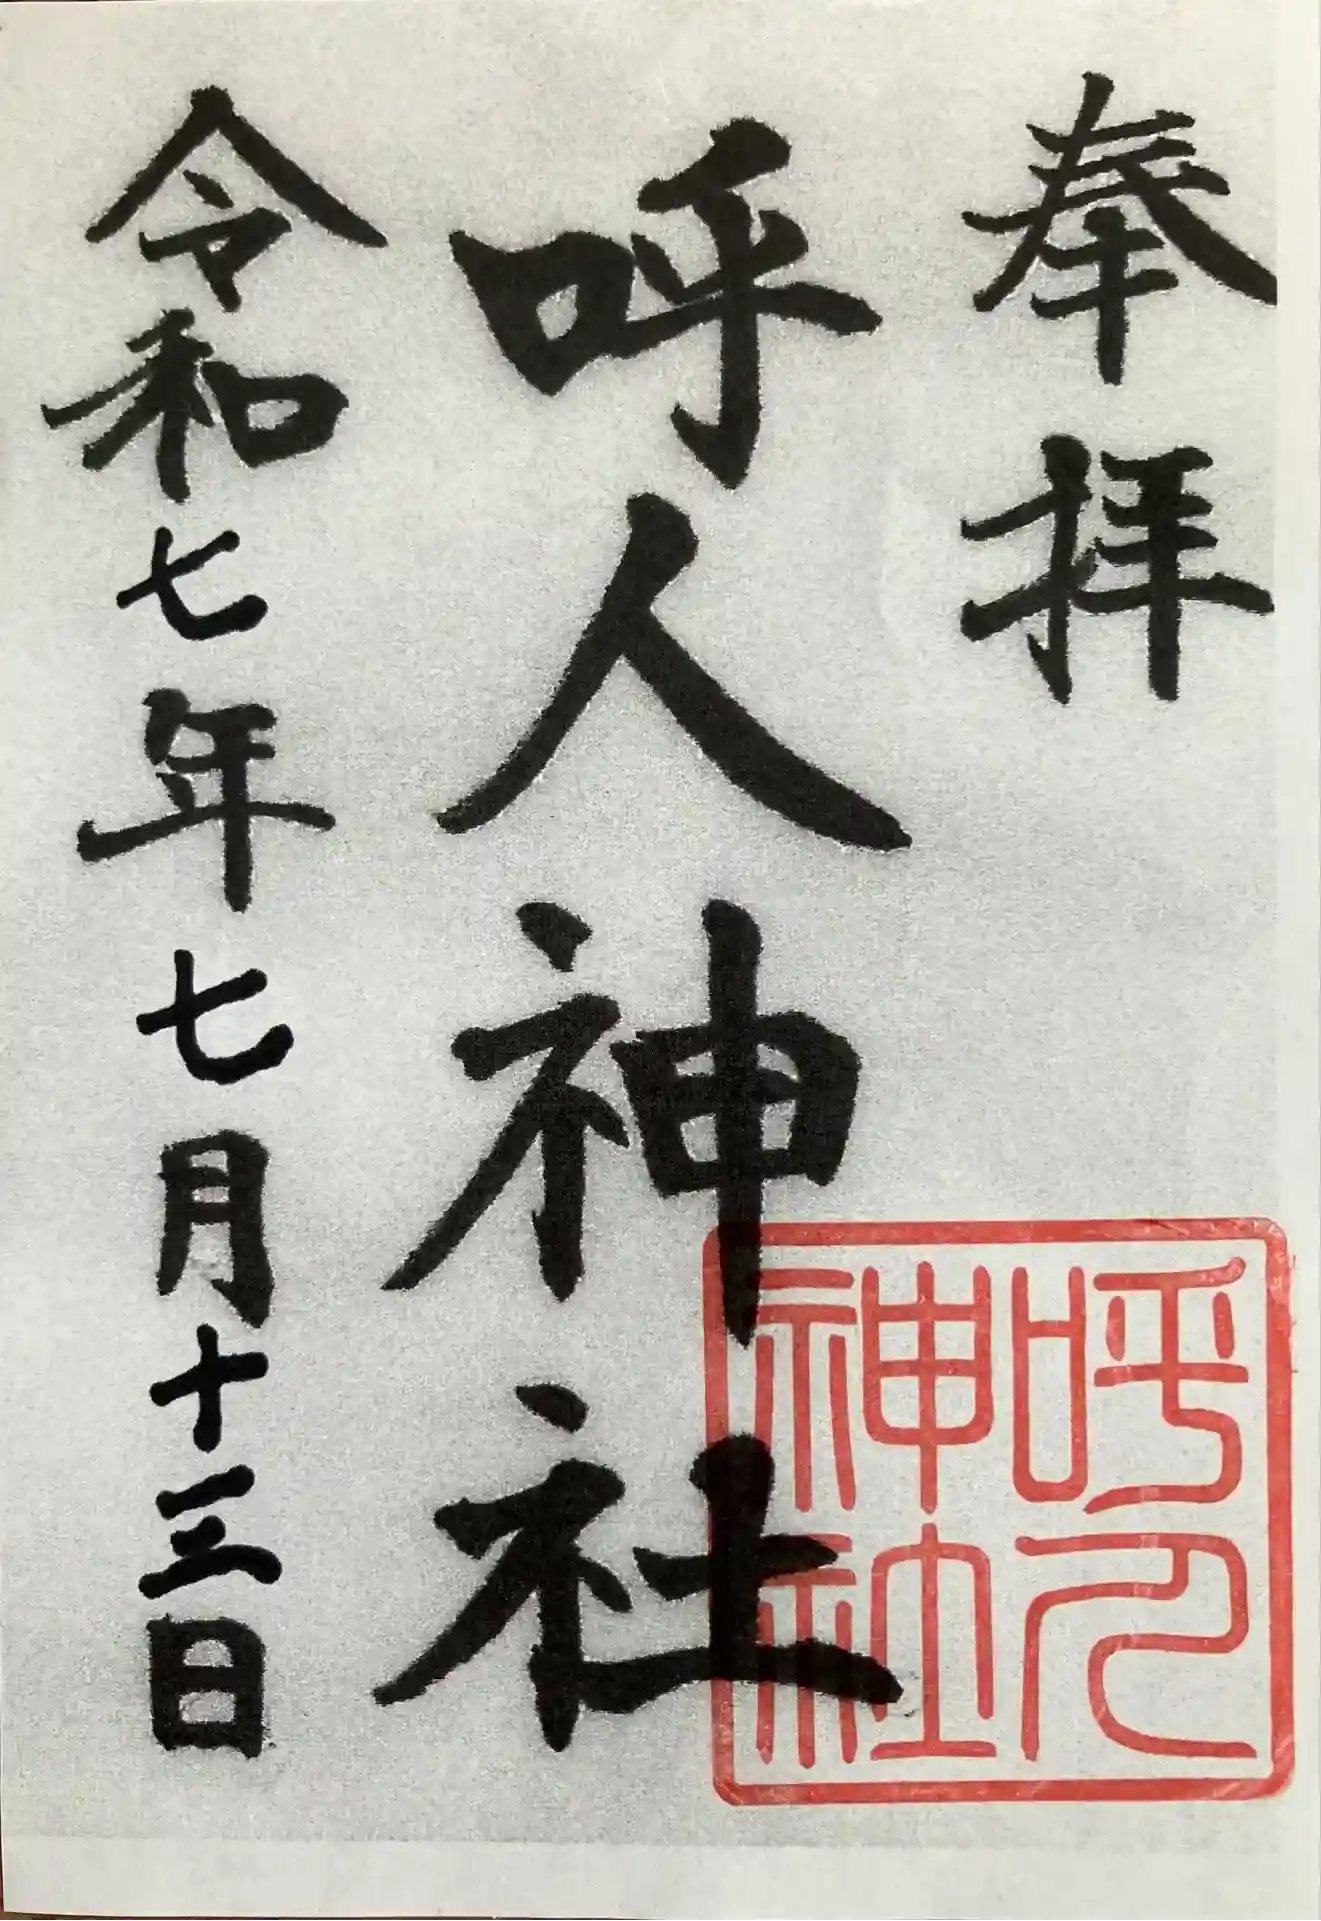 奉拝
呼人神社
令和七年七月十三日
呼人
神社